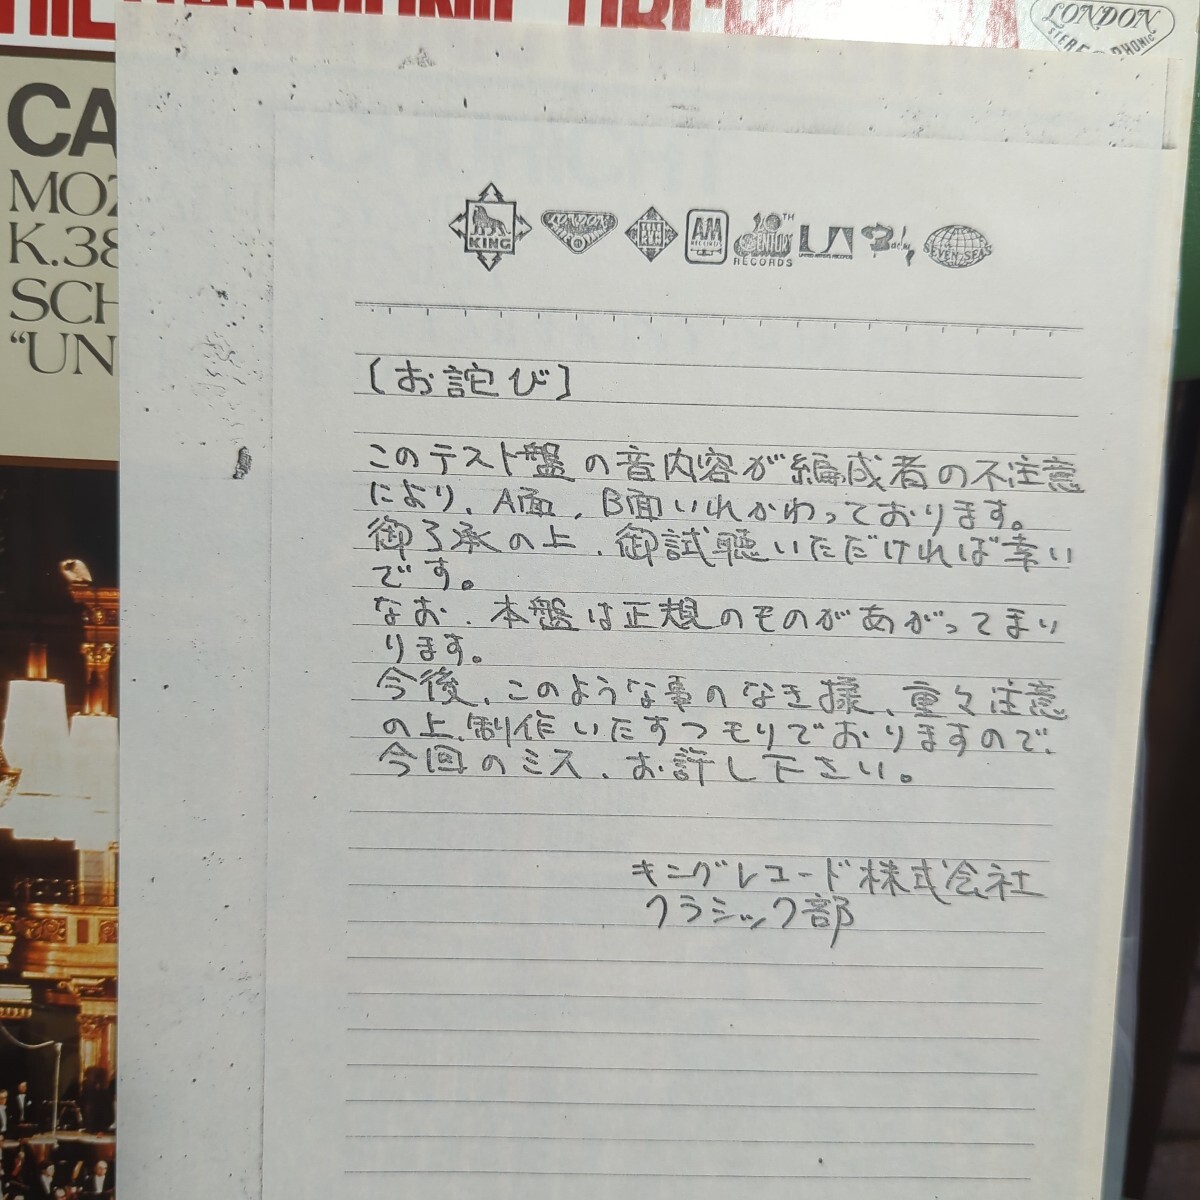 PHILHARMONIC ORCH
LONDON
STEREOPHONIC
CA
MOZ
K.38
SCH
“UN
KING
London
A&M
RECORDS
20TH
CENTURY
RECORDS
UA
UNITED ARTISTS RECORDS
SEVEN SEAS
〔お詫び〕
このテスト盤の音内容が編成者の不注意
により、A面、B面いれかわっております。
御了承の上、御試聴いただければ幸い
です。
なお、本盤は正規のものがあがってまい
ります。
今後、このような事のなき様、重々注意
の上、制作いたすつもりでおりますので、
今回のミス、お許し下さい。
キングレコード株式会社
クラシック部